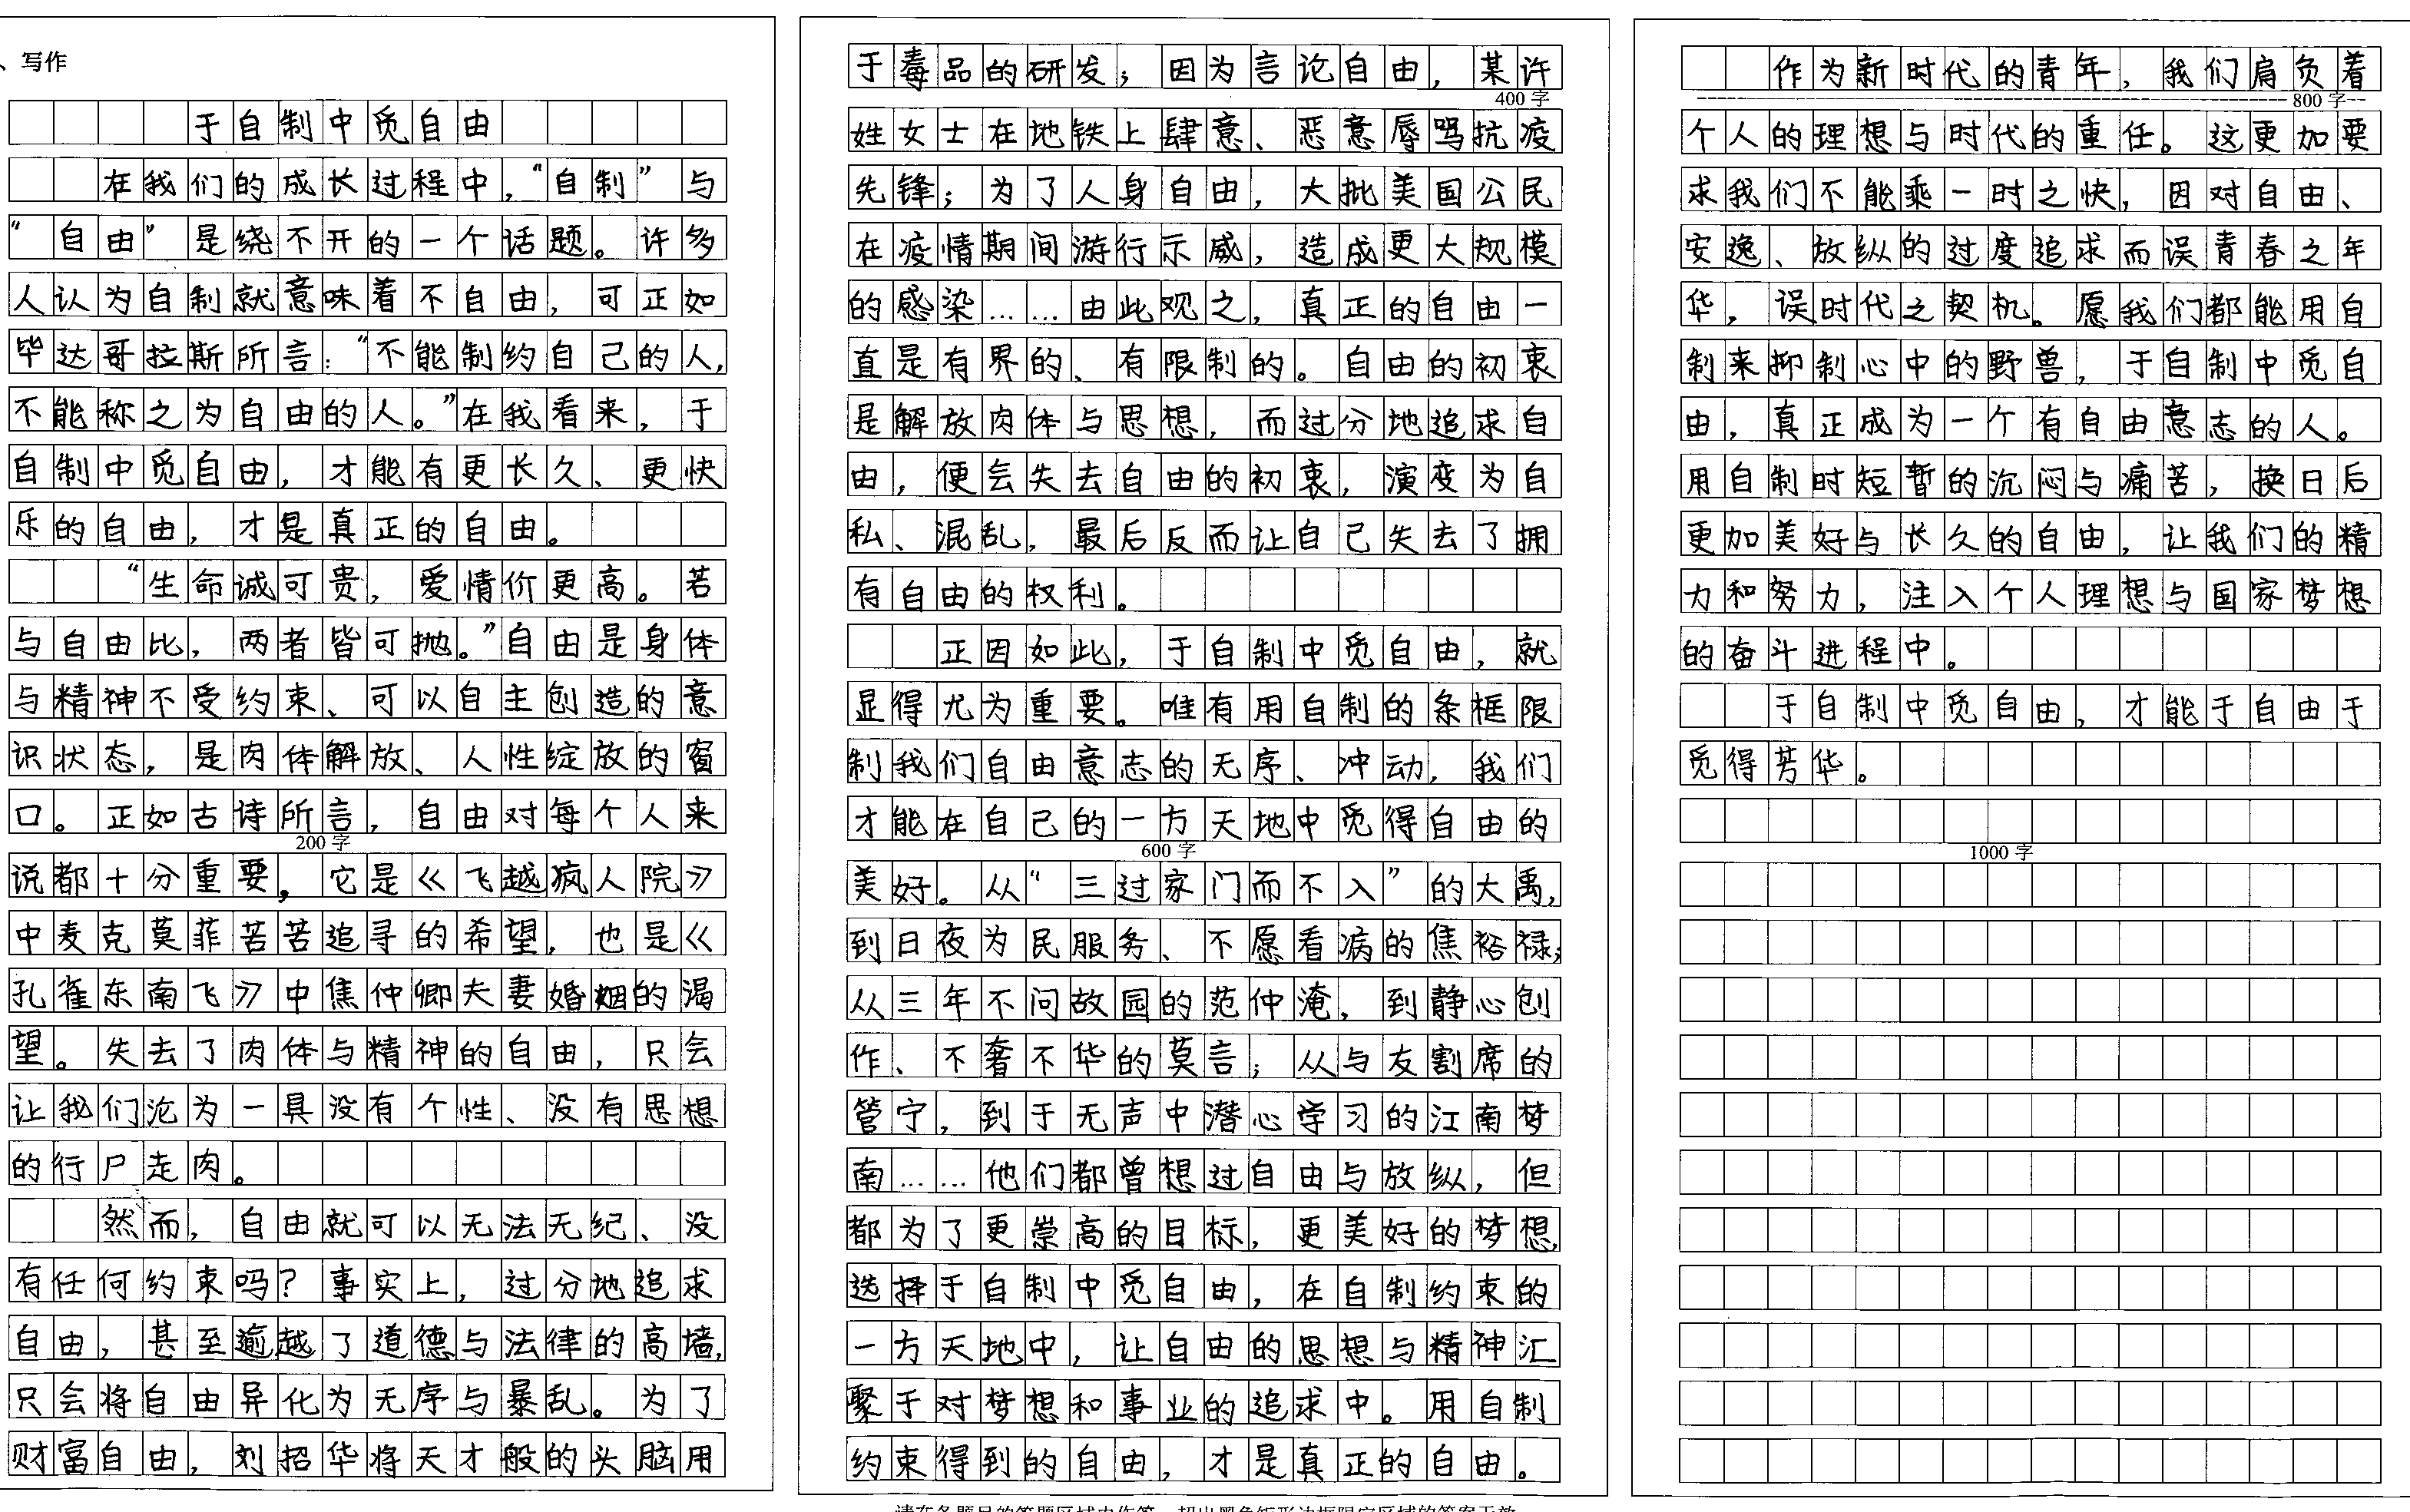 、写作
于自制中觅自由
在我们的成长过程中，“自制”与
“自由”是绕不开的一个话题。许多
人认为自制就意味着不自由，可正如
毕达哥拉斯所言：“不能制约自己的人，
不能称之为自由的人。”在我看来，于
自制中觅自由，才能有更长久、更快
乐的自由，才是真正的自由。
“生命诚可贵，爱情价更高。若
与自由比，两者皆可抛。”自由是身体
与精神不受约束、可以自主创造的意
识状态，是肉体解放、人性绽放的窗
口。正如古诗所言，自由对每个人来
200字
说都十分重要，它是《飞越疯人院》
中麦克莫菲苦苦追寻的希望，也是《
孔雀东南飞》中焦仲卿夫妻婚姻的渴
望。失去了肉体与精神的自由，只会
让我们沦为一具没有个性、没有思想
的行尸走肉。
然而，自由就可以无法无纪、没
有任何约束吗？事实上，过分地追求
自由，甚至逾越了道德与法律的高墙，
只会将自由异化为无序与暴乱。为了
财富自由，刘招华将天才般的头脑用
于毒品的研发；因为言论自由，某许
400字
姓女士在地铁上肆意、恶意辱骂抗疫
先锋；为了人身自由，大批美国公民
在疫情期间游行示威，造成更大规模
的感染……由此观之，真正的自由一
直是有界的、有限制的。自由的初衷
是解放肉体与思想，而过分地追求自
由，便会失去自由的初衷，演变为自
私、混乱，最后反而让自己失去了拥
有自由的权利。
正因如此，于自制中觅自由，就
显得尤为重要。唯有用自制的条框限
制我们自由意志的无序、冲动，我们
才能在自己的一方天地中觅得自由的
600字
美好。从“三过家门而不入”的大禹，
到日夜为民服务、不愿看病的焦裕禄；
从三年不问故园的范仲淹，到静心创
作、不奢不华的莫言；从与友割席的
管宁，到于无声中潜心学习的江南梦
南……他们都曾想过自由与放纵，但
都为了更崇高的目标，更美好的梦想，
选择于自制中觅自由，在自制约束的
一方天地中，让自由的思想与精神汇
聚于对梦想和事业的追求中。用自制
约束得到的自由，才是真正的自由。
作为新时代的青年，我们肩负着
800字
个人的理想与时代的重任。这更加要
求我们不能乘一时之快，因对自由、
安逸、放纵的过度追求而误青春之年
华，误时代之契机。愿我们都能用自
制来抑制心中的野兽，于自制中觅自
由，真正成为一个有自由意志的人。
用自制时短暂的沉闷与痛苦，换日后
更加美好与长久的自由，让我们的精
力和努力，注入个人理想与国家梦想
的奋斗进程中。
于自制中觅自由，才能于自由于
觅得芳华。
1000字